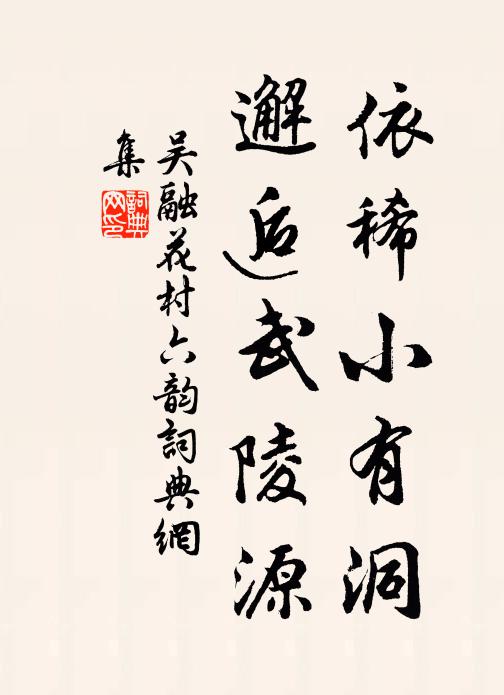 依稀小有洞
邂逅武陵源
吴融花村六韵詞典網
集
詞典
网印